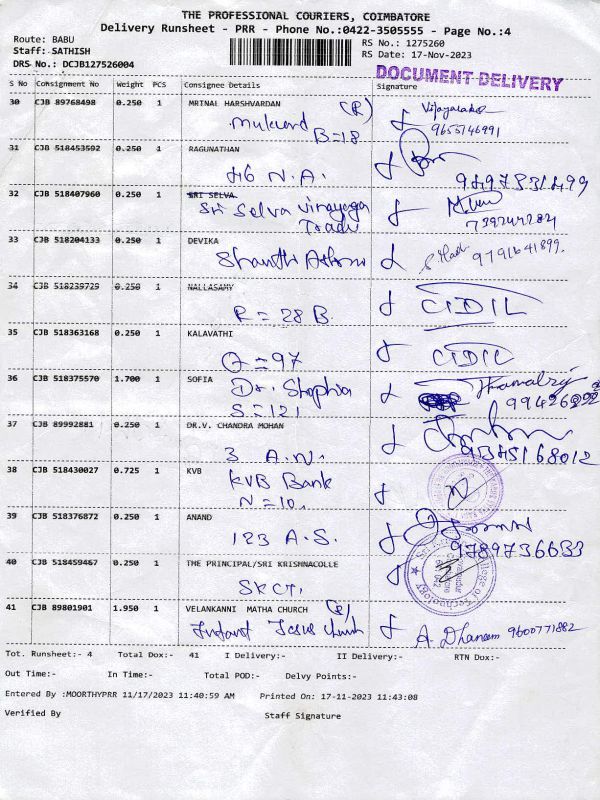 THE PROFESSIONAL COURIERS, COIMBATORE
Delivery Runsheet - PRR - Phone No.:0422-3505555 - Page No.:4
Route: BABU
RS No.: 1275260
Staff: SATHISH
RS Date: 17-Nov-2023
DRS No.: DCJB127526004
DOCUMENT DELIVERY
S No Consignment No Weight PCS Consignee Details Signature
30 CJB 89768498 0.250 1 MRINAL HARSHVARDAN (R)
Mukund
B=18
9655746991
31 CJB 518453592 0.250 1 RAGUNATHAN
46 N.A.
32 CJB 518407960 0.250 1 SRI SELVA
Sri Selva Vinayaga
33 CJB 518204133 0.250 1 DEVIKA
9791641899.
34 CJB 518239729 0.250 1 NALLASAMY
R=28 B
35 CJB 518363168 0.250 1 KALAVATHI
Q=97
36 CJB 518375570 1.700 1 SOFIA
Dr. Shophia
S=121
37 CJB 89992881 0.250 1 DR.V. CHANDRA MOHAN
3 A.N.
9345168012
38 CJB 518430027 0.725 1 KVB
KVB Bank
N=10.
39 CJB 518376872 0.250 1 ANAND
123 A.S.
9789736633
40 CJB 518459467 0.250 1 THE PRINCIPAL/SRI KRISHNACOLLE
SKCT.
College of Technology
41 CJB 89801901 1.950 1 VELANKANNI MATHA CHURCH
Infant Jesus church
A. Dhaneem 9600771882
Tot. Runsheet:- 4 Total Dox:- 41 I Delivery:- II Delivery:- RTN Dox:-
Out Time:- In Time:- Total POD:- Delvy Points:-
Entered By :MOORTHYPRR 11/17/2023 11:40:59 AM Printed On: 17-11-2023 11:43:08
Verified By Staff Signature